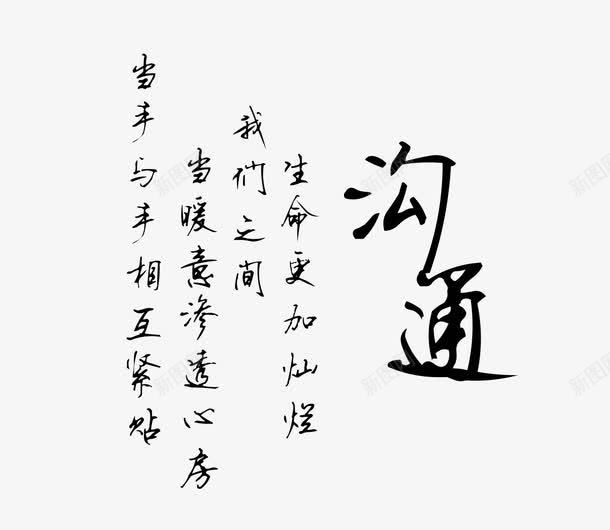 沟通
当手与手相互紧贴
当暖意渗透心房
我们之间
生命更加灿烂